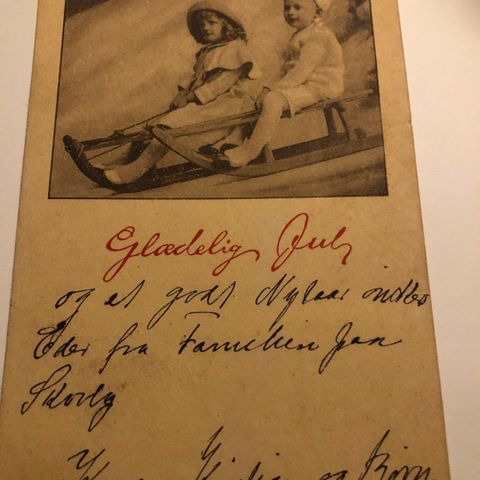 Glædelig Jul
og et godt Nytaar ønskes
Eder fra Familien
og Børn